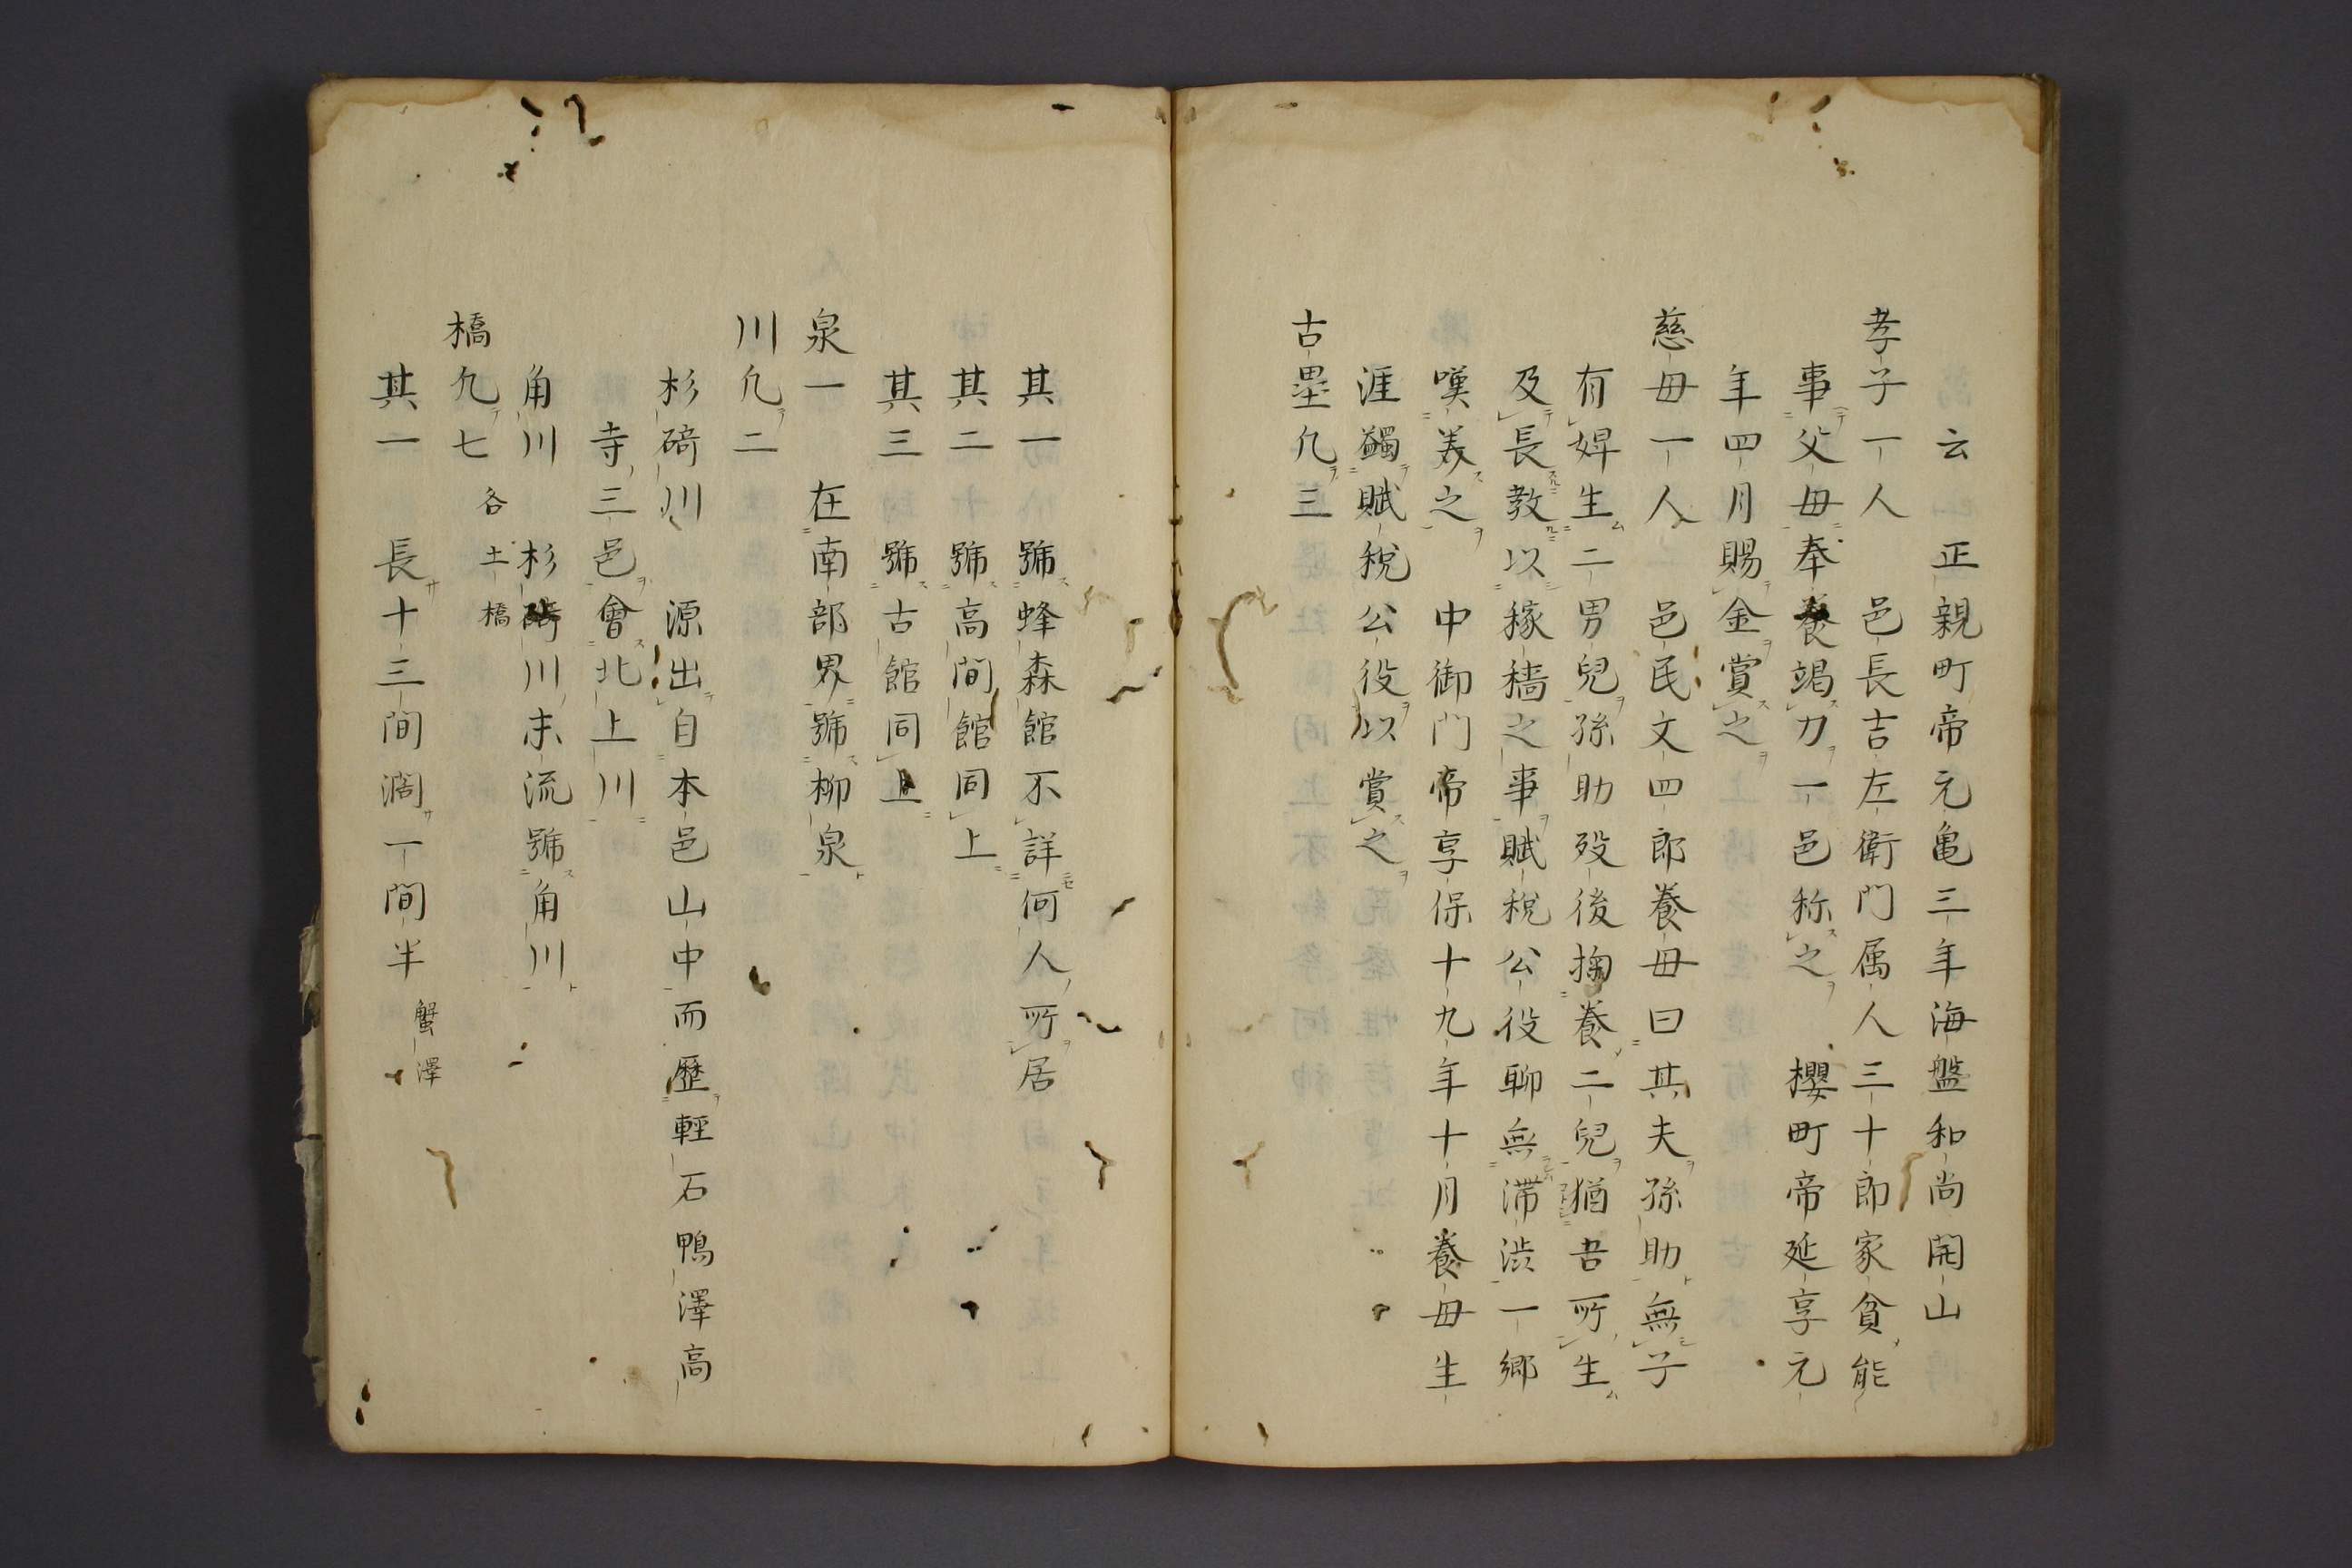 云　正親町帝元亀三年海盤和尚開山
孝子一人　邑長吉左衛門属人三十郎家貧能
事父母奉養竭力一邑称之　櫻町帝延享元
年四月賜金賞之
慈母一人　邑民文四郎養母曰其夫孫助無子
有婢生二男兒孫助歿後掬養二兒猶吾所生
及長教以稼穡之事賦税公役聊無滞渋一郷
嘆美之　中御門帝享保十九年十月養母生
涯蠲賦税公役以賞之
古壘凢三
其一　號蜂森館不詳何人所居
其二　號高間館同上
其三　號古館同上
泉一　在南部界號柳泉
川凢二
杉碕川　源出自本邑山中而歴輕石鴨澤高
寺三邑會北上川
角川　杉碕川末流號角川
橋凢七　各土橋
其一　長十三間濶一間半　蟹澤